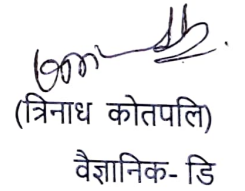 (त्रिनाध कोतपलि)
वैज्ञानिक- डि